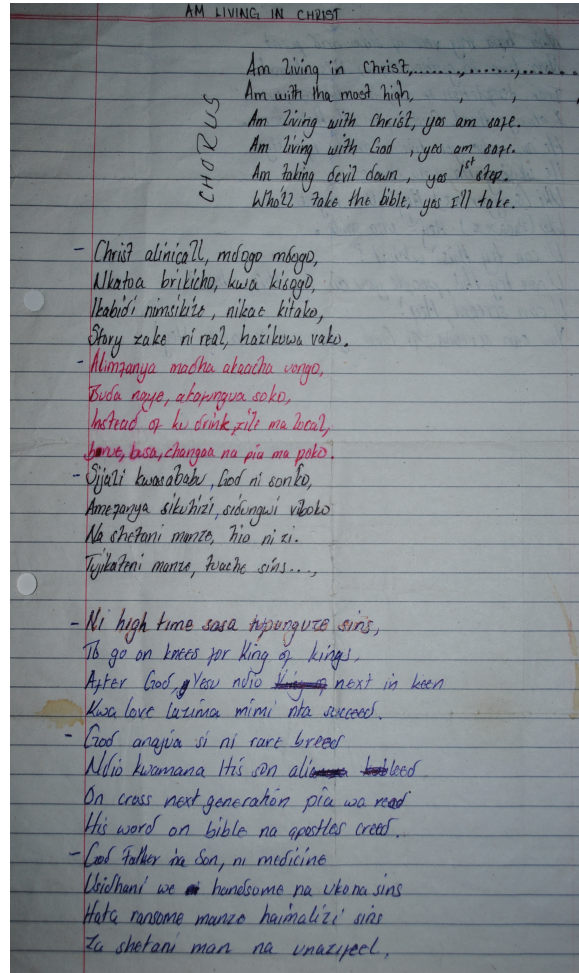 AM LIVING IN CHRIST
CHORUS
Am living in Christ,......,.......,......
Am with tha most high, , , ,
Am living with Christ, yes am safe.
Am living with God , yes am safe.
Am taking devil down , yes 1st step.
Who'll take the bible, yes I'll take.
- Christ alinicall, mdogo mdogo,
Nkatoa brikicho, kwa kisogo,
Ikabidi nimsikize , nikae kitako,
Story zake ni real, hazikuwa vako.
- Alimfanya madha akaacha uongo,
Buda naye, akafungua soko,
Instead of ku drink, zile ma local,
busa, changaa na pia ma poko.
- Sijali kwasababu, God ni sonko,
Amefanya sikuhizi, sidungwi viboko
Na shetani manze, hio ni zi.
Tujikazeni manze, tuache sins...,
- Ni high time sasa tupunguze sins,
To go on knees for King of kings,
After God, Yesu ndio next in keen
Kwa love lazima mimi nta succeed.
- God anajua si ni rare breed
Ndio kwamana His son ali bleed
On cross next generation pia wa read
His word on bible na apostles creed.
- God Father na Son, ni medicine
Usidhani we handsome na ukona sins
Hata ransome manze haimalizi sins
Za shetani man na unazifeel,